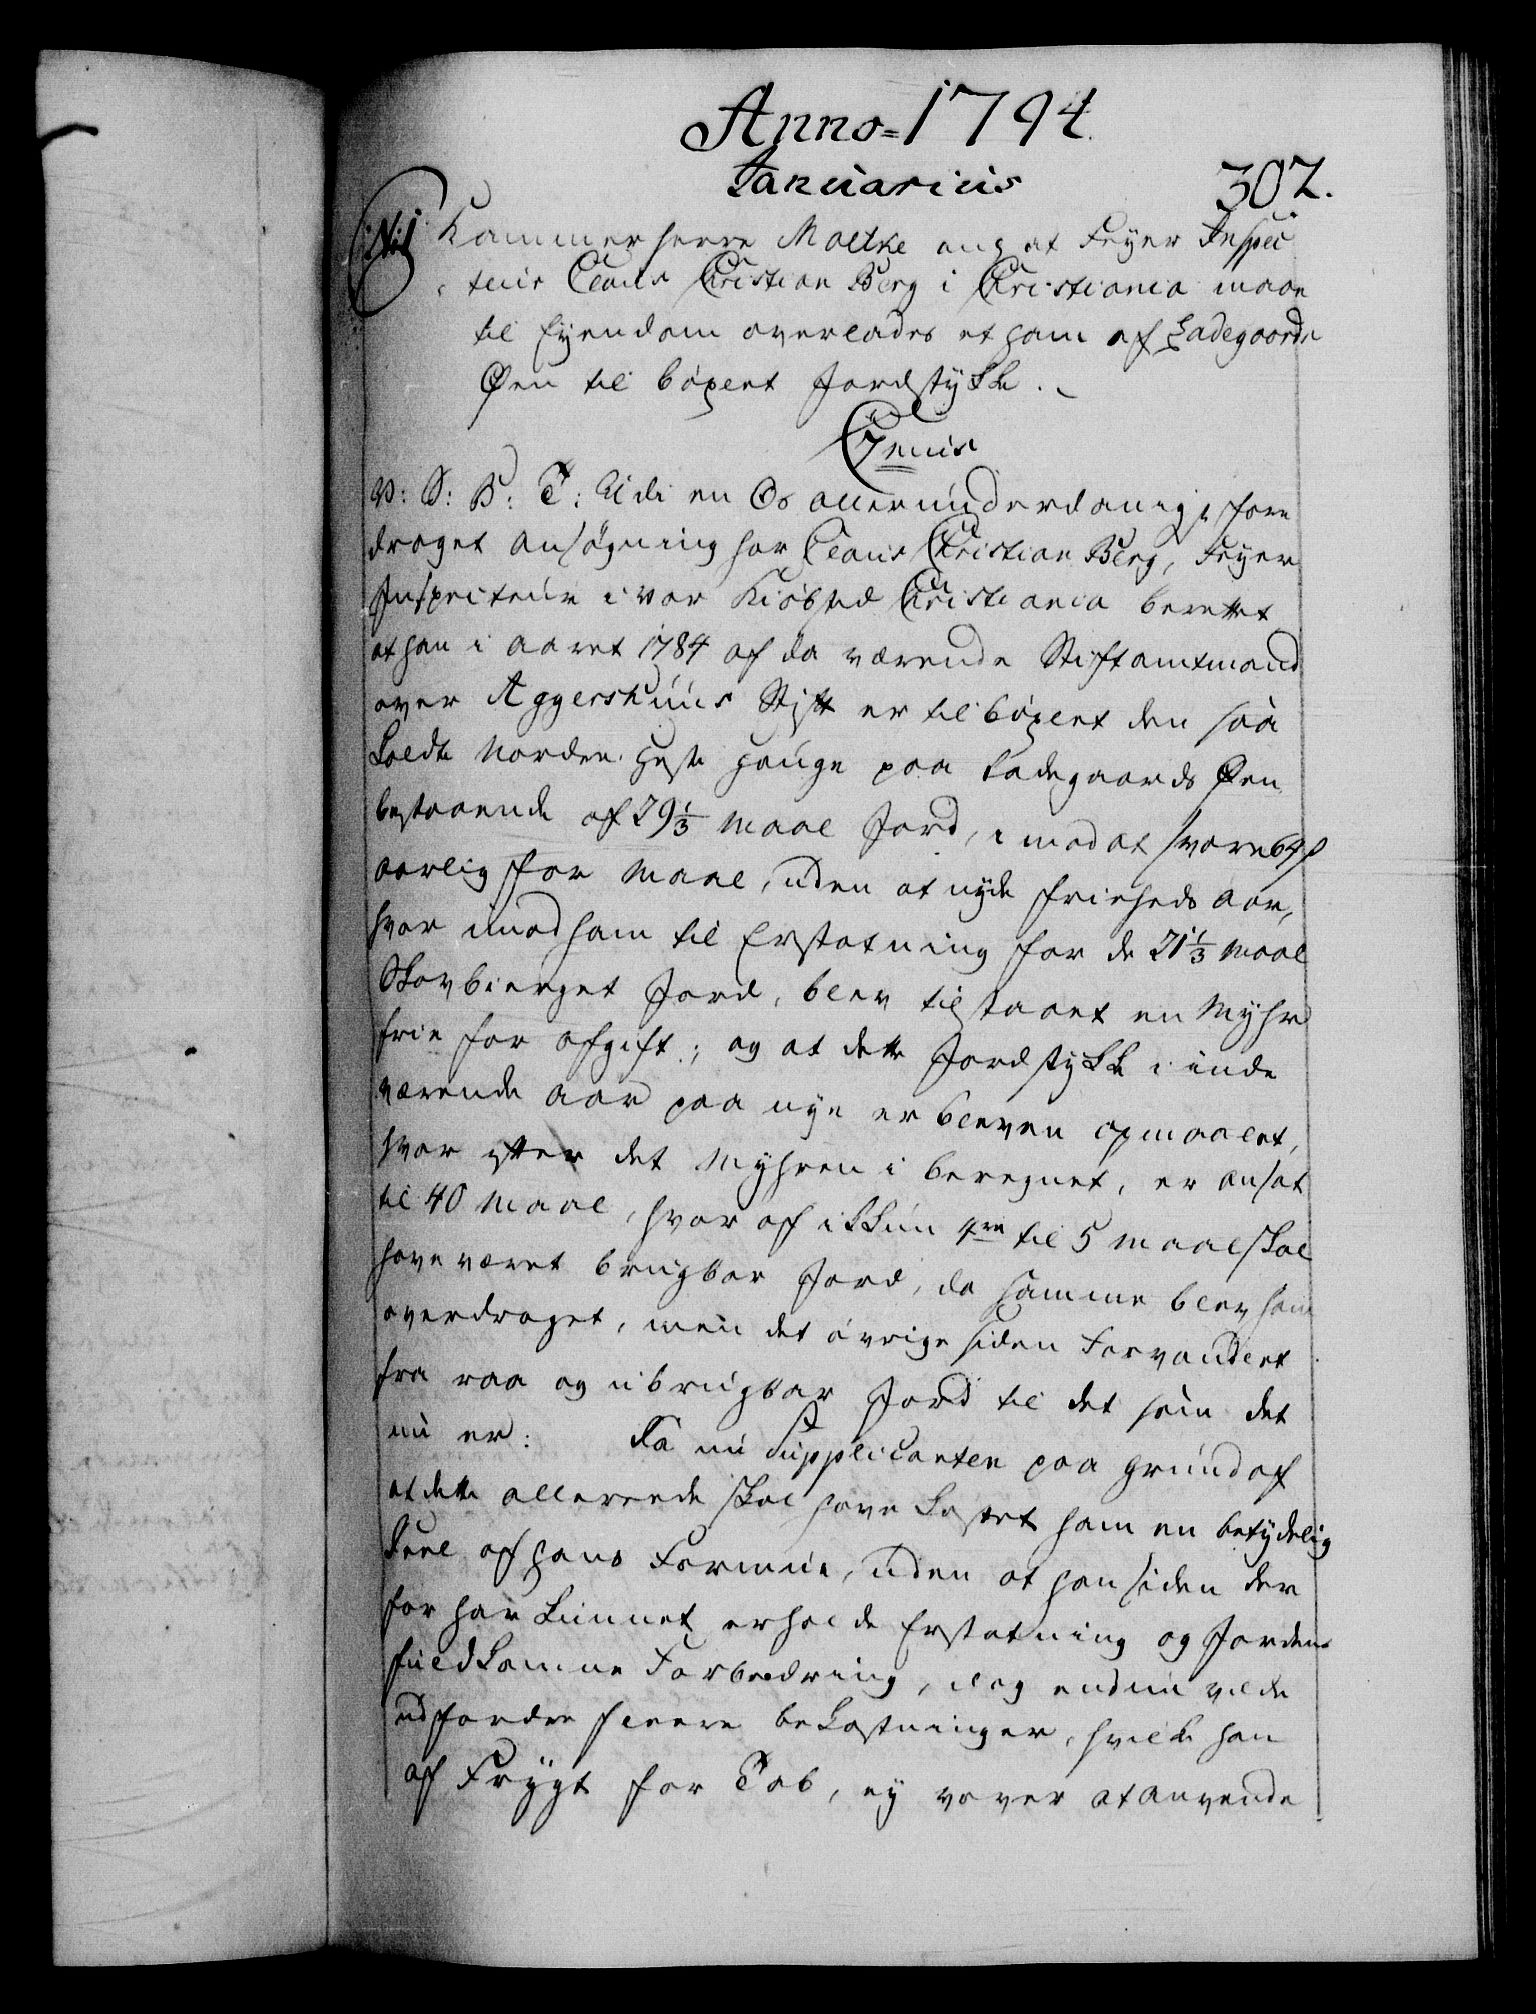 Anno = 1794.
Januarius
302.
No 1 Kammerherre Moltke ang at Feyer Inspec
teur Claus Christian Berg i Christiania maae
til Eyendom overlades et ham af Ladegaards
Øen til böxlet Jordstykke.
Genus
V: S: B: T: Udi en Os allerunderdanigst fore
draget Ansøgning har Claus Christian Berg, Feyer
Inspecteur i vor Kiøbsted Christiania berettet
at han i Aaret 1784 af da værende Stiftamtmand
over Aggershuus Stift er tilböxlet den saa
kaldte Nordre Heste Hauge paa Ladegaards Øen
bestaaende af 29 1/3 Maal Jord, imod at svare 64 s
aarlig for Maal, uden at nyde Friheds Aar,
hvor imod ham til Erstatning for de 21 1/3 Maal
Skovbierget Jord, blev tilstaaet en Myhr
frie for Afgift; og at dette Jordstykke i inde
værende Aar paa nye er bleven opmaalet,
hvor efter det Myhren i beregnet, er ansat
til 40 Maal, hvor af ikkun 4re til 5 Maal skal
have været brugbar Jord, da samme blev ham
overdraget, men det øvrige siden Forvandlet
fra raa og ubrugbar Jord til det som det
nu er: Da nu Supplicanten paa Grund af
at dette allerede skal have kostet ham en betydelig
Deel af hans Formue, uden at han siden der
for har kunnet erholde Erstatning og Jordens
fuldkomne Forbedring, dog endnu vilde
udfordre fleere bekostninger, hvilke han
af Frygt for Tab, ey vover at anvende